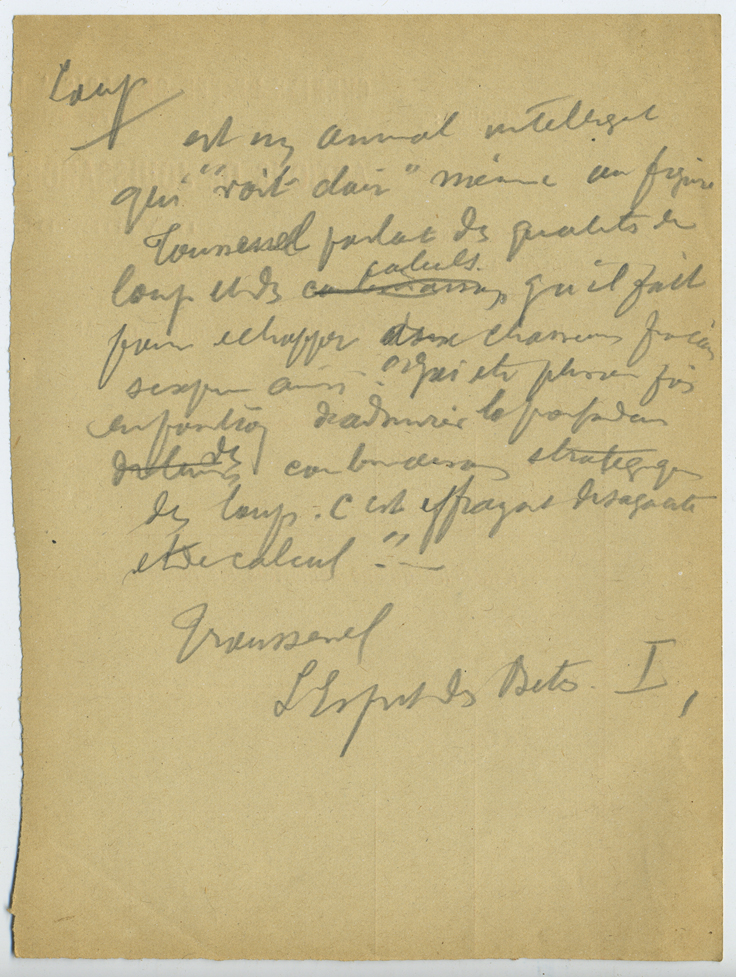 Loup
est un animal intelligent
qui "voit clair" même au figuré
Toussenel parlait des qualités du
loup et des calculs qu'il fait
pour échapper aux chasseurs
s'exprime ainsi : "J'ai été plusieurs fois
en position d'admirer la profondeur
des combinaisons stratégiques
des loups. C'est effrayant de sagacité
et de calcul".—
Toussenel
L'Esprit des Bêtes. I,